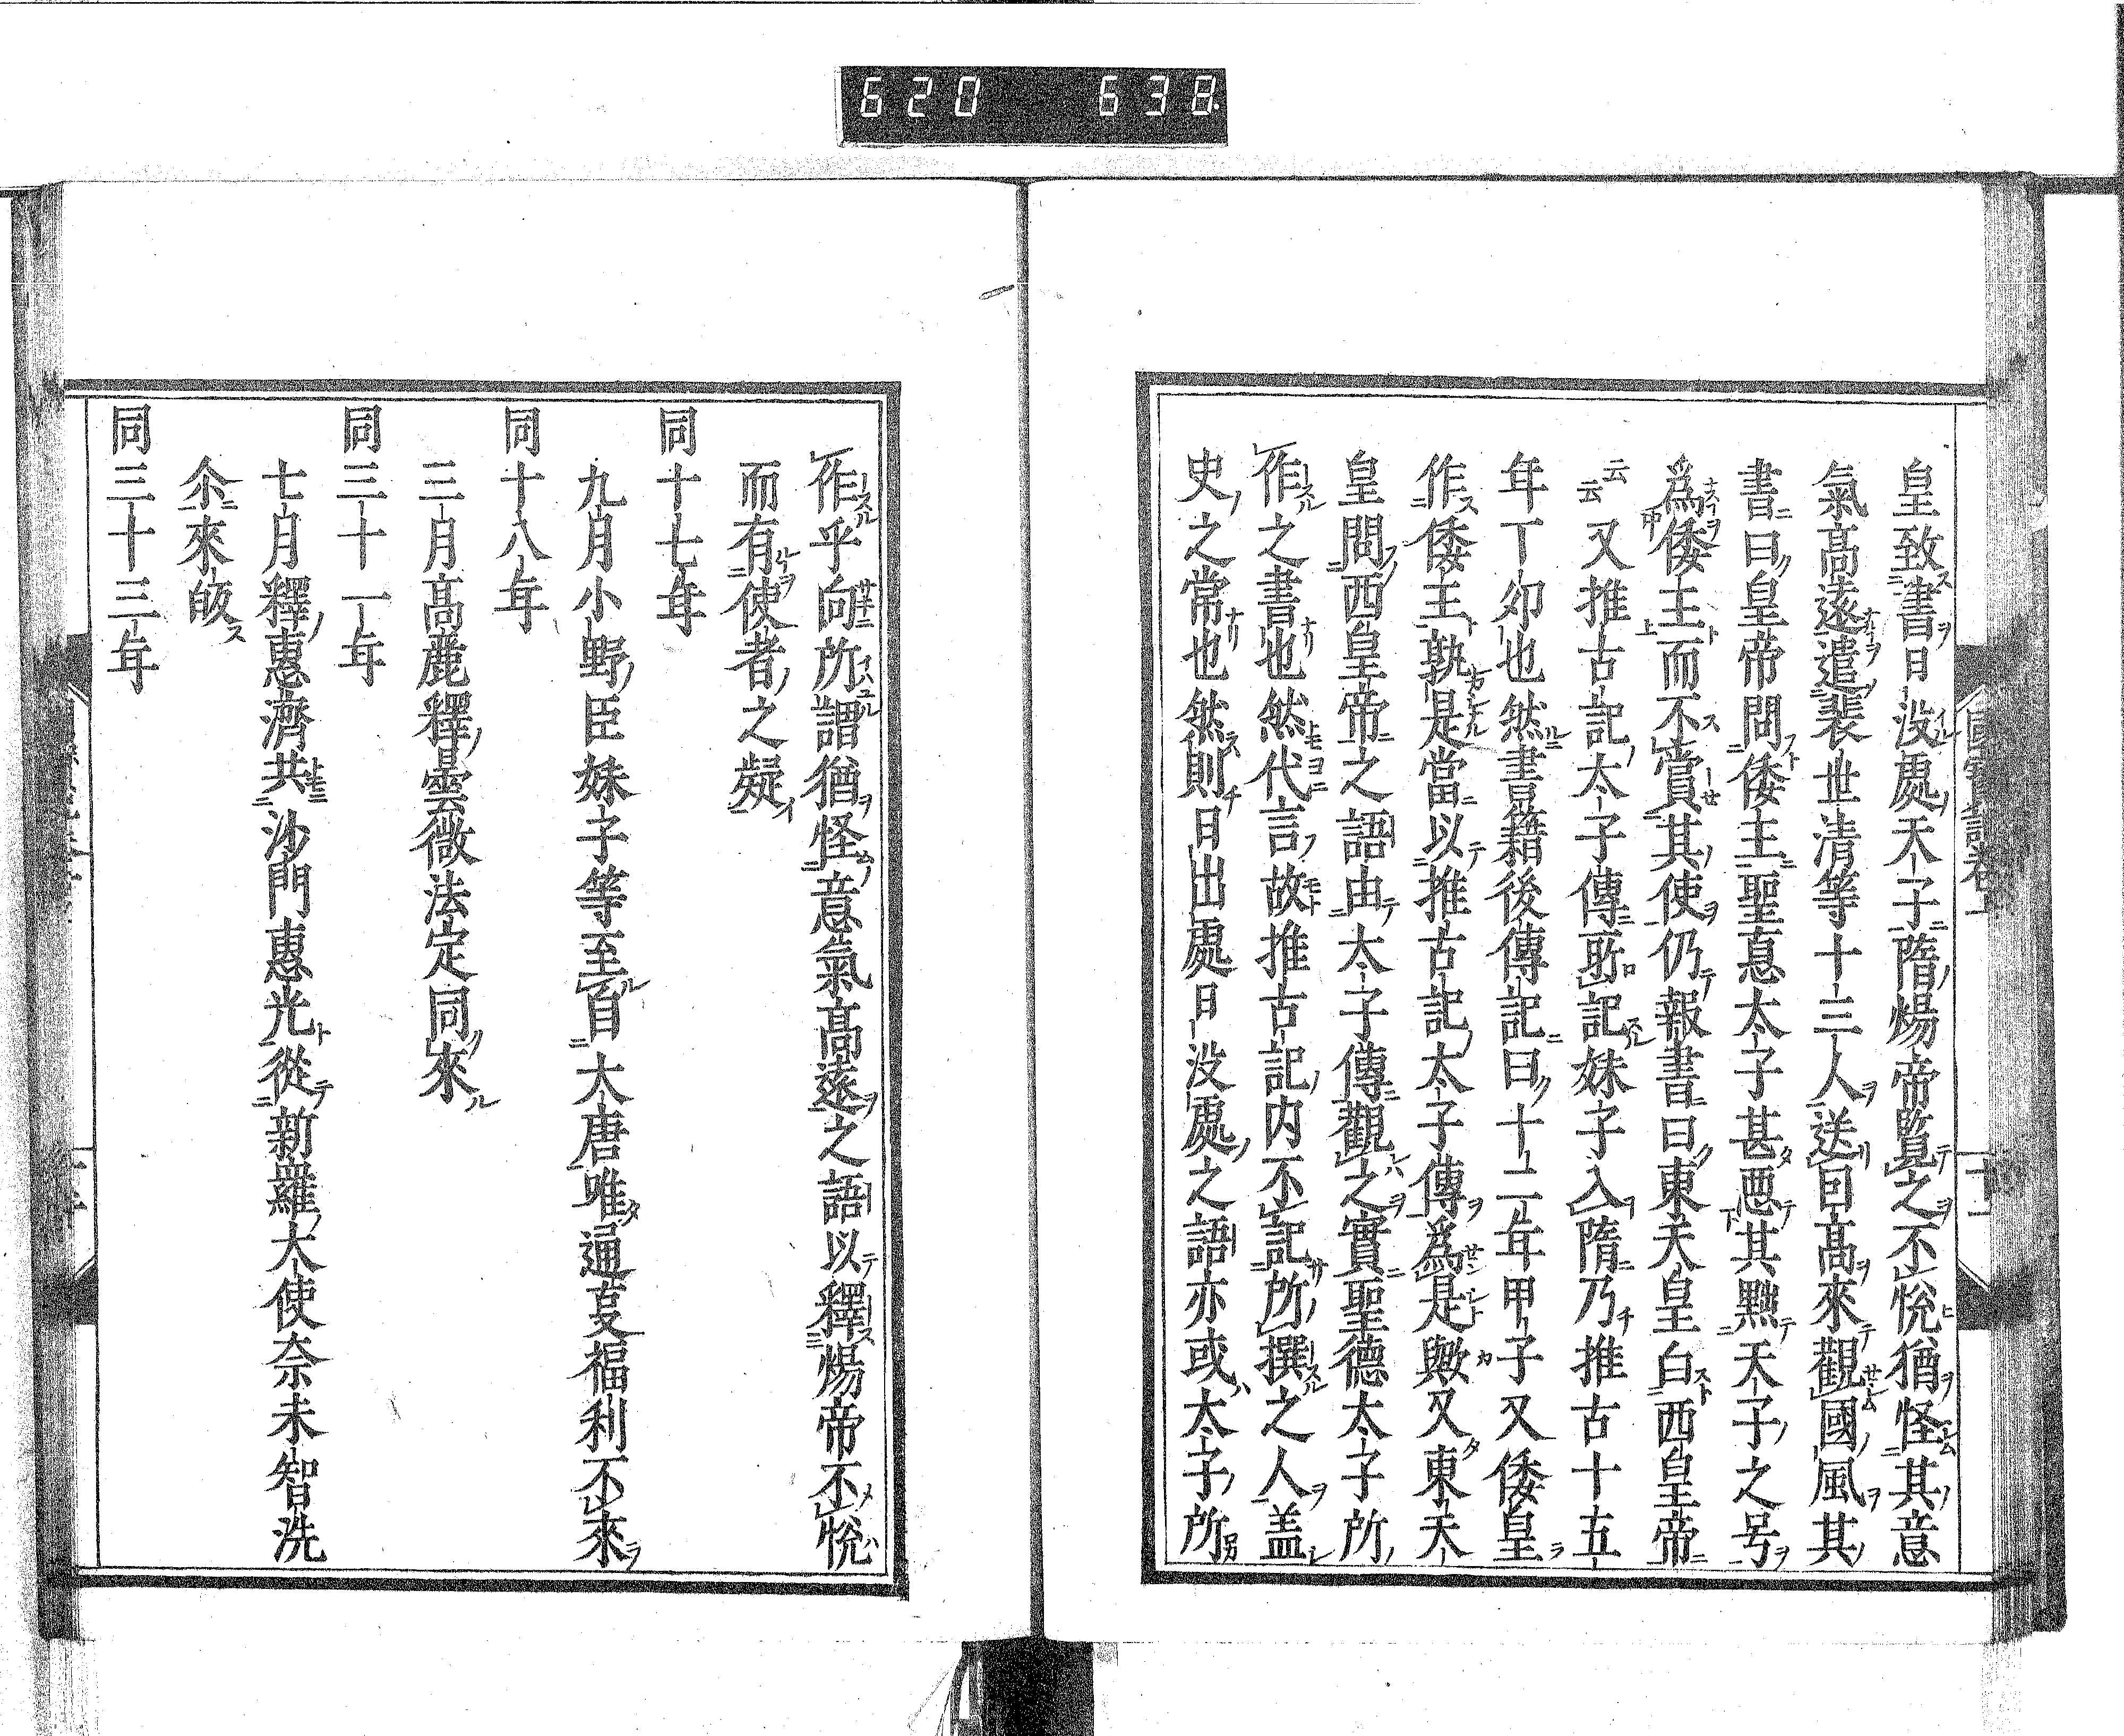 620 638
皇致書日没處天子隋煬帝覽之不悅猶怪其意
氣高遠遣裴世清等十三人送曰高來觀國風其
書曰皇帝問倭王聖德太子甚惡其黜天子之号
爲倭王而不賞其使仍報書曰東天皇白西皇帝
云云又推古記太子傳所記妹子入隋乃推古十五
年丁卯也然書籍後傳記曰十二年甲子又倭皇
作倭王孰是當以推古記太子傳爲是歟又東天
皇問西皇帝之語由太子傳觀之實聖德太子所
作之書也然代言故推古記内不記所撰之人盖
史之常也然則日出處日没處之語亦或太子所
作乎向所謂猶怪意氣高遠之語以釋煬帝不悅
而有使者之疑
同十七年
九月小野臣妹子等至自大唐唯通叓福利不來
同十八年
三月高麗釋曇徵法定同來
同三十一年
七月釋惠濟共沙門惠光從新羅大使奈未智洗
尒來皈
同三十三年